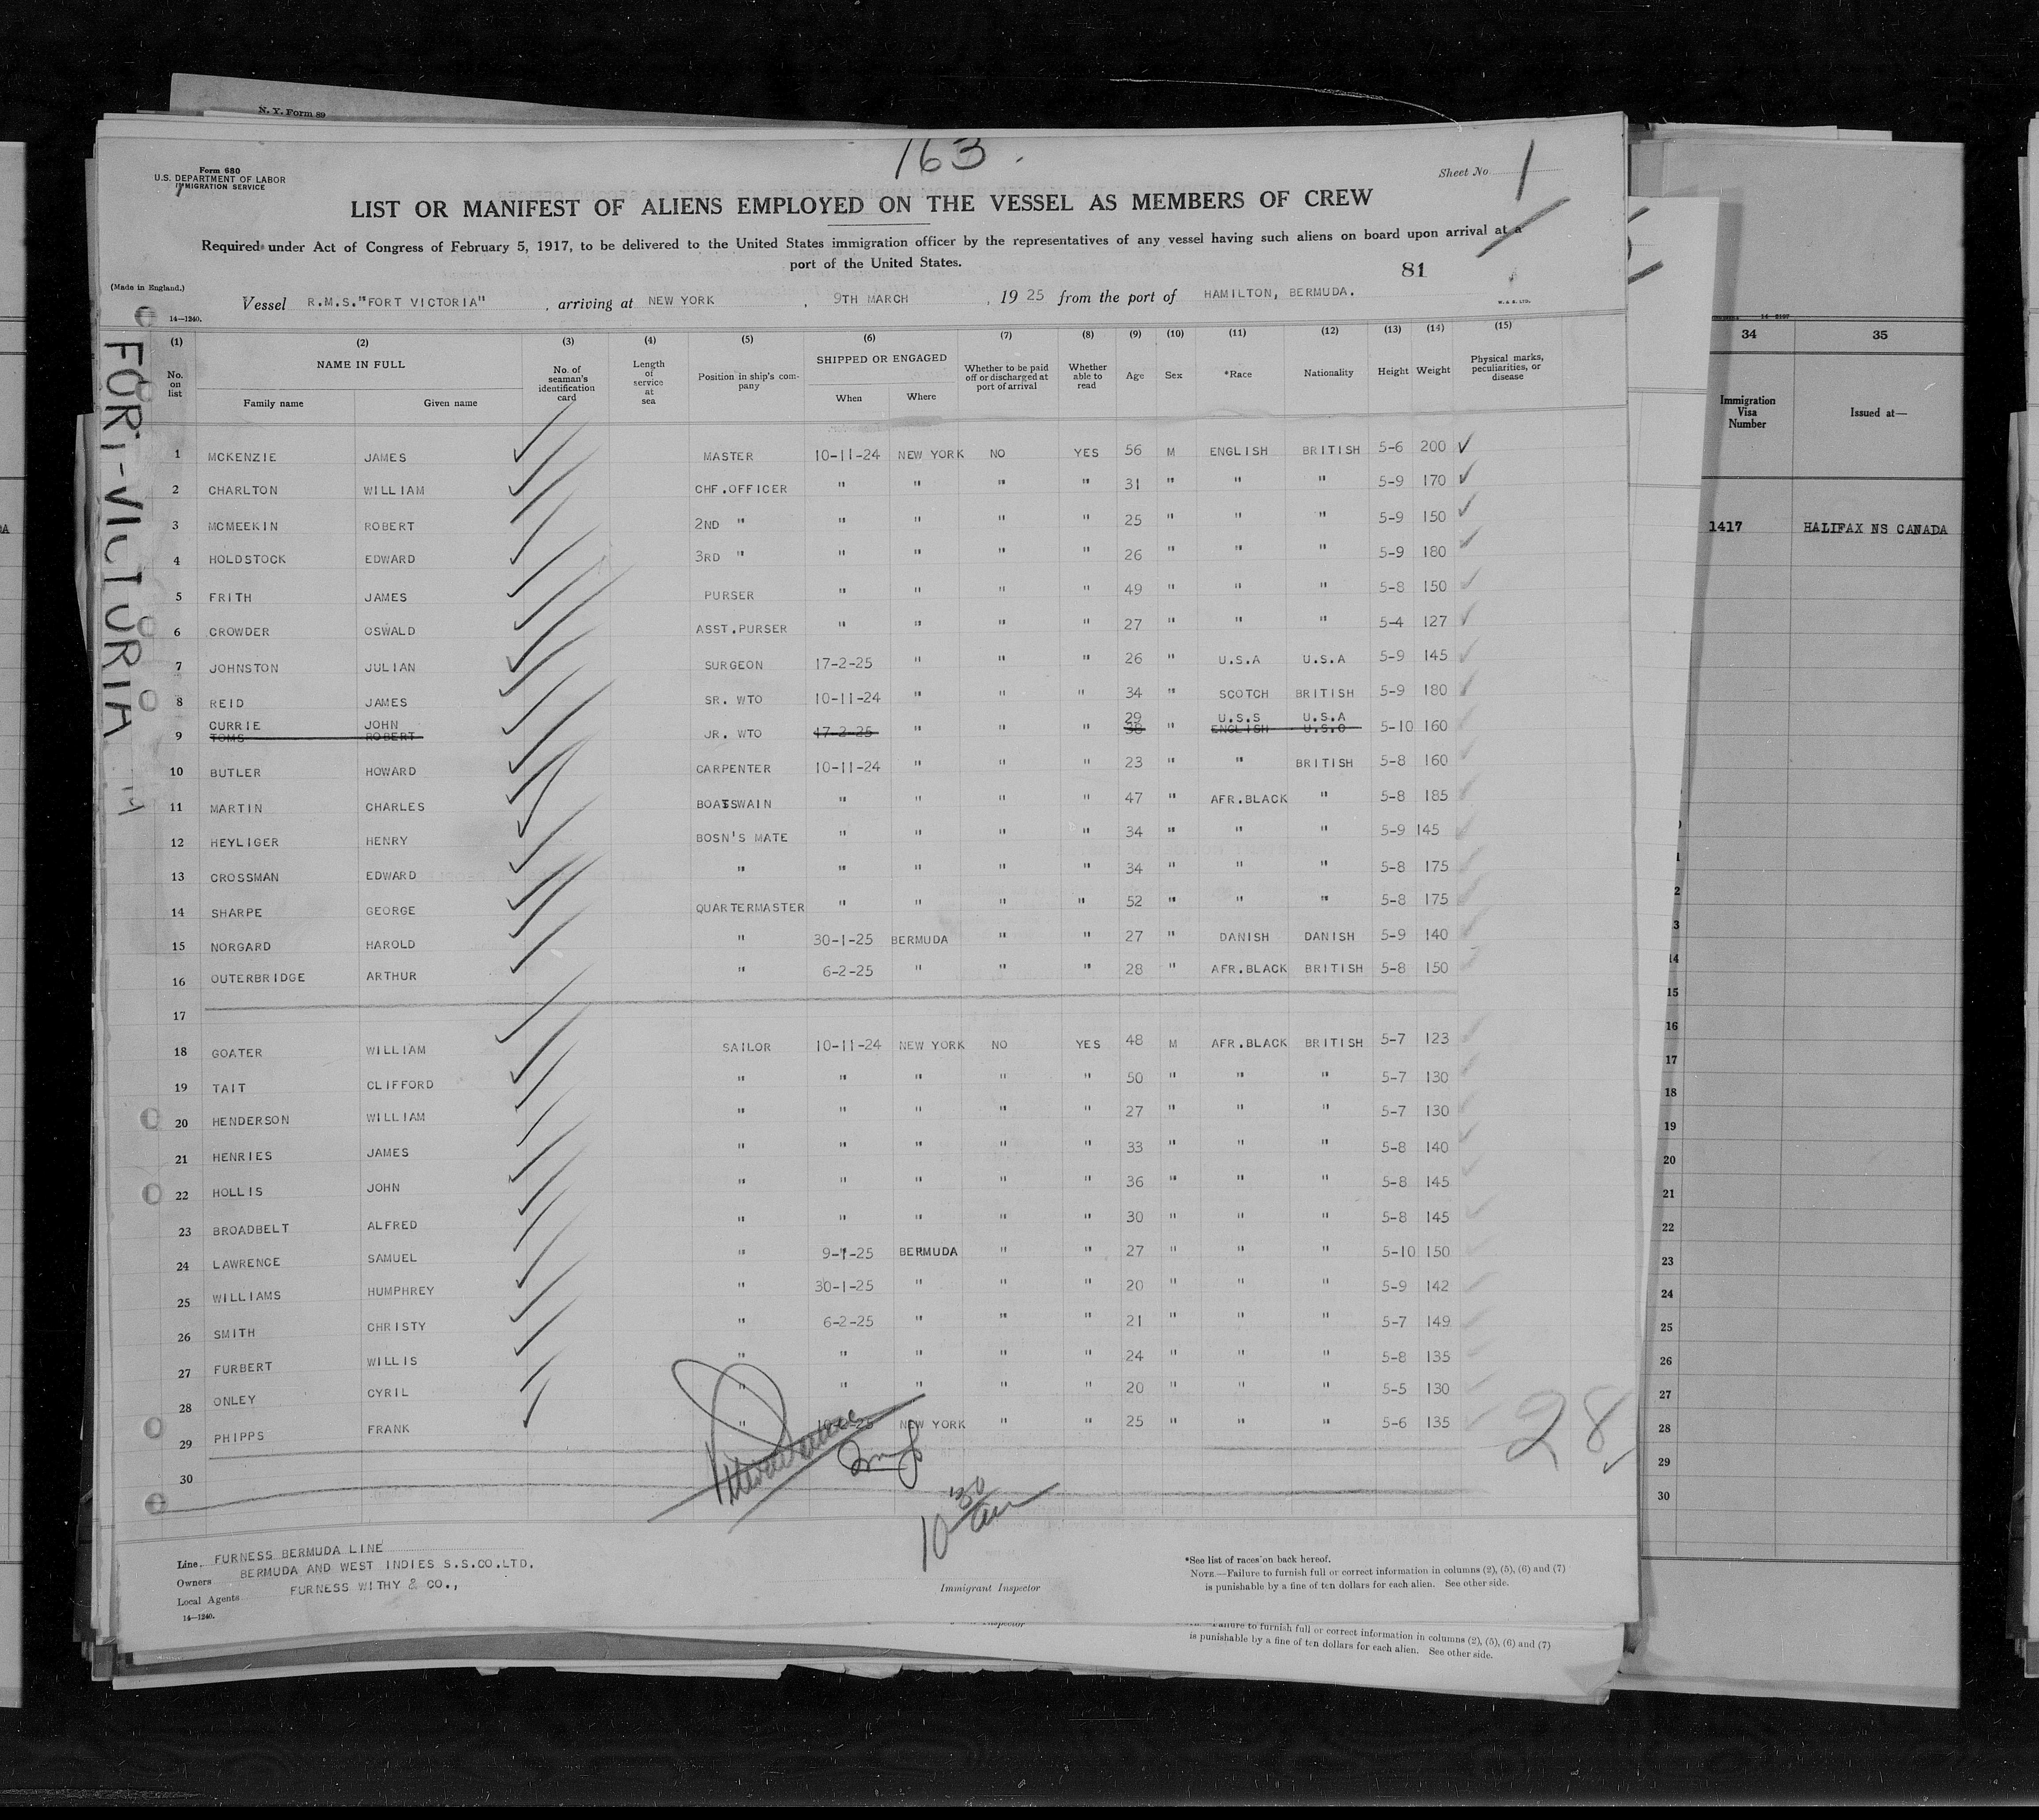 N. Y. Form 89
163.
Form 680
U.S. DEPARTMENT OF LABOR
IMMIGRATION SERVICE
Sheet No. 1
LIST OR MANIFEST OF ALIENS EMPLOYED ON THE VESSEL AS MEMBERS OF CREW
Required under Act of Congress of February 5, 1917, to be delivered to the United States immigration officer by the representatives of any vessel having such aliens on board upon arrival at a
port of the United States.
81
(Made in England.)
Vessel R.M.S."FORT VICTORIA", arriving at NEW YORK, 9TH MARCH, 1925 from the port of HAMILTON, BERMUDA.
14—1240.
W. & S. LTD.
FORT-VICTORIA
(1) (2) (3) (4) (5) (6) (7) (8) (9) (10) (11) (12) (13) (14) (15)
No. on list
NAME IN FULL
Family name Given name
No. of seaman's identification card
Length of service at sea
Position in ship's company
SHIPPED OR ENGAGED
When Where
Whether to be paid off or discharged at port of arrival
Whether able to read
Age Sex *Race Nationality Height Weight
Physical marks, peculiarities, or disease
1 MCKENZIE JAMES MASTER 10-11-24 NEW YORK NO YES 56 M ENGLISH BRITISH 5-6 200
2 CHARLTON WILLIAM CHF.OFFICER " " " " 31 " " " 5-9 170
3 MCMEEKIN ROBERT 2ND " " " " " 25 " " " 5-9 150
4 HOLDSTOCK EDWARD 3RD " " " " " 26 " " " 5-9 180
5 FRITH JAMES PURSER " " " " 49 " " " 5-8 150
6 CROWDER OSWALD ASST.PURSER " " " " 27 " " " 5-4 127
7 JOHNSTON JULIAN SURGEON 17-2-25 " " " 26 " U.S.A U.S.A 5-9 145
8 REID JAMES SR. WTO 10-11-24 " " " 34 " SCOTCH BRITISH 5-9 180
CURRIE JOHN 29 U.S.S U.S.A
9 TOMS ROBERT JR. WTO 17-2-25 " " " 38 " ENGLISH U.S.O 5-10 160
10 BUTLER HOWARD CARPENTER 10-11-24 " " " 23 " " BRITISH 5-8 160
11 MARTIN CHARLES BOATSWAIN " " " " 47 " AFR.BLACK " 5-8 185
12 HEYLIGER HENRY BOSN'S MATE " " " " 34 " " " 5-9 145
13 CROSSMAN EDWARD " " " " " 34 " " " 5-8 175
14 SHARPE GEORGE QUARTERMASTER " " " " 52 " " " 5-8 175
15 NORGARD HAROLD " 30-1-25 BERMUDA " " 27 " DANISH DANISH 5-9 140
16 OUTERBRIDGE ARTHUR " 6-2-25 " " " 28 " AFR.BLACK BRITISH 5-8 150
17
18 GOATER WILLIAM SAILOR 10-11-24 NEW YORK NO YES 48 M AFR.BLACK BRITISH 5-7 123
19 TAIT CLIFFORD " " " " " 50 " " " 5-7 130
20 HENDERSON WILLIAM " " " " " 27 " " " 5-7 130
21 HENRIES JAMES " " " " " 33 " " " 5-8 140
22 HOLLIS JOHN " " " " " 36 " " " 5-8 145
23 BROADBELT ALFRED " " " " " 30 " " " 5-8 145
24 LAWRENCE SAMUEL " 9-1-25 BERMUDA " " 27 " " " 5-10 150
25 WILLIAMS HUMPHREY " 30-1-25 " " " 20 " " " 5-9 142
26 SMITH CHRISTY " 6-2-25 " " " 21 " " " 5-7 149
27 FURBERT WILLIS " " " " " 24 " " " 5-8 135
28 ONLEY CYRIL " " " " " 20 " " " 5-5 130
29 PHIPPS FRANK " NEW YORK " " 25 " " " 5-6 135
30
28
10 30 am
Line FURNESS BERMUDA LINE
Owners BERMUDA AND WEST INDIES S.S.CO.LTD.
Local Agents FURNESS WITHY & CO.,
14—1240.
Immigrant Inspector
*See list of races on back hereof.
NOTE.—Failure to furnish full or correct information in columns (2), (5), (6) and (7)
is punishable by a fine of ten dollars for each alien. See other side.
Failure to furnish full or correct information in columns (2), (5), (6) and (7)
is punishable by a fine of ten dollars for each alien. See other side.
34 35
Immigration Visa Number
Issued at—
1417 HALIFAX NS CANADA
14
15
16
17
18
19
20
21
22
23
24
25
26
27
28
29
30